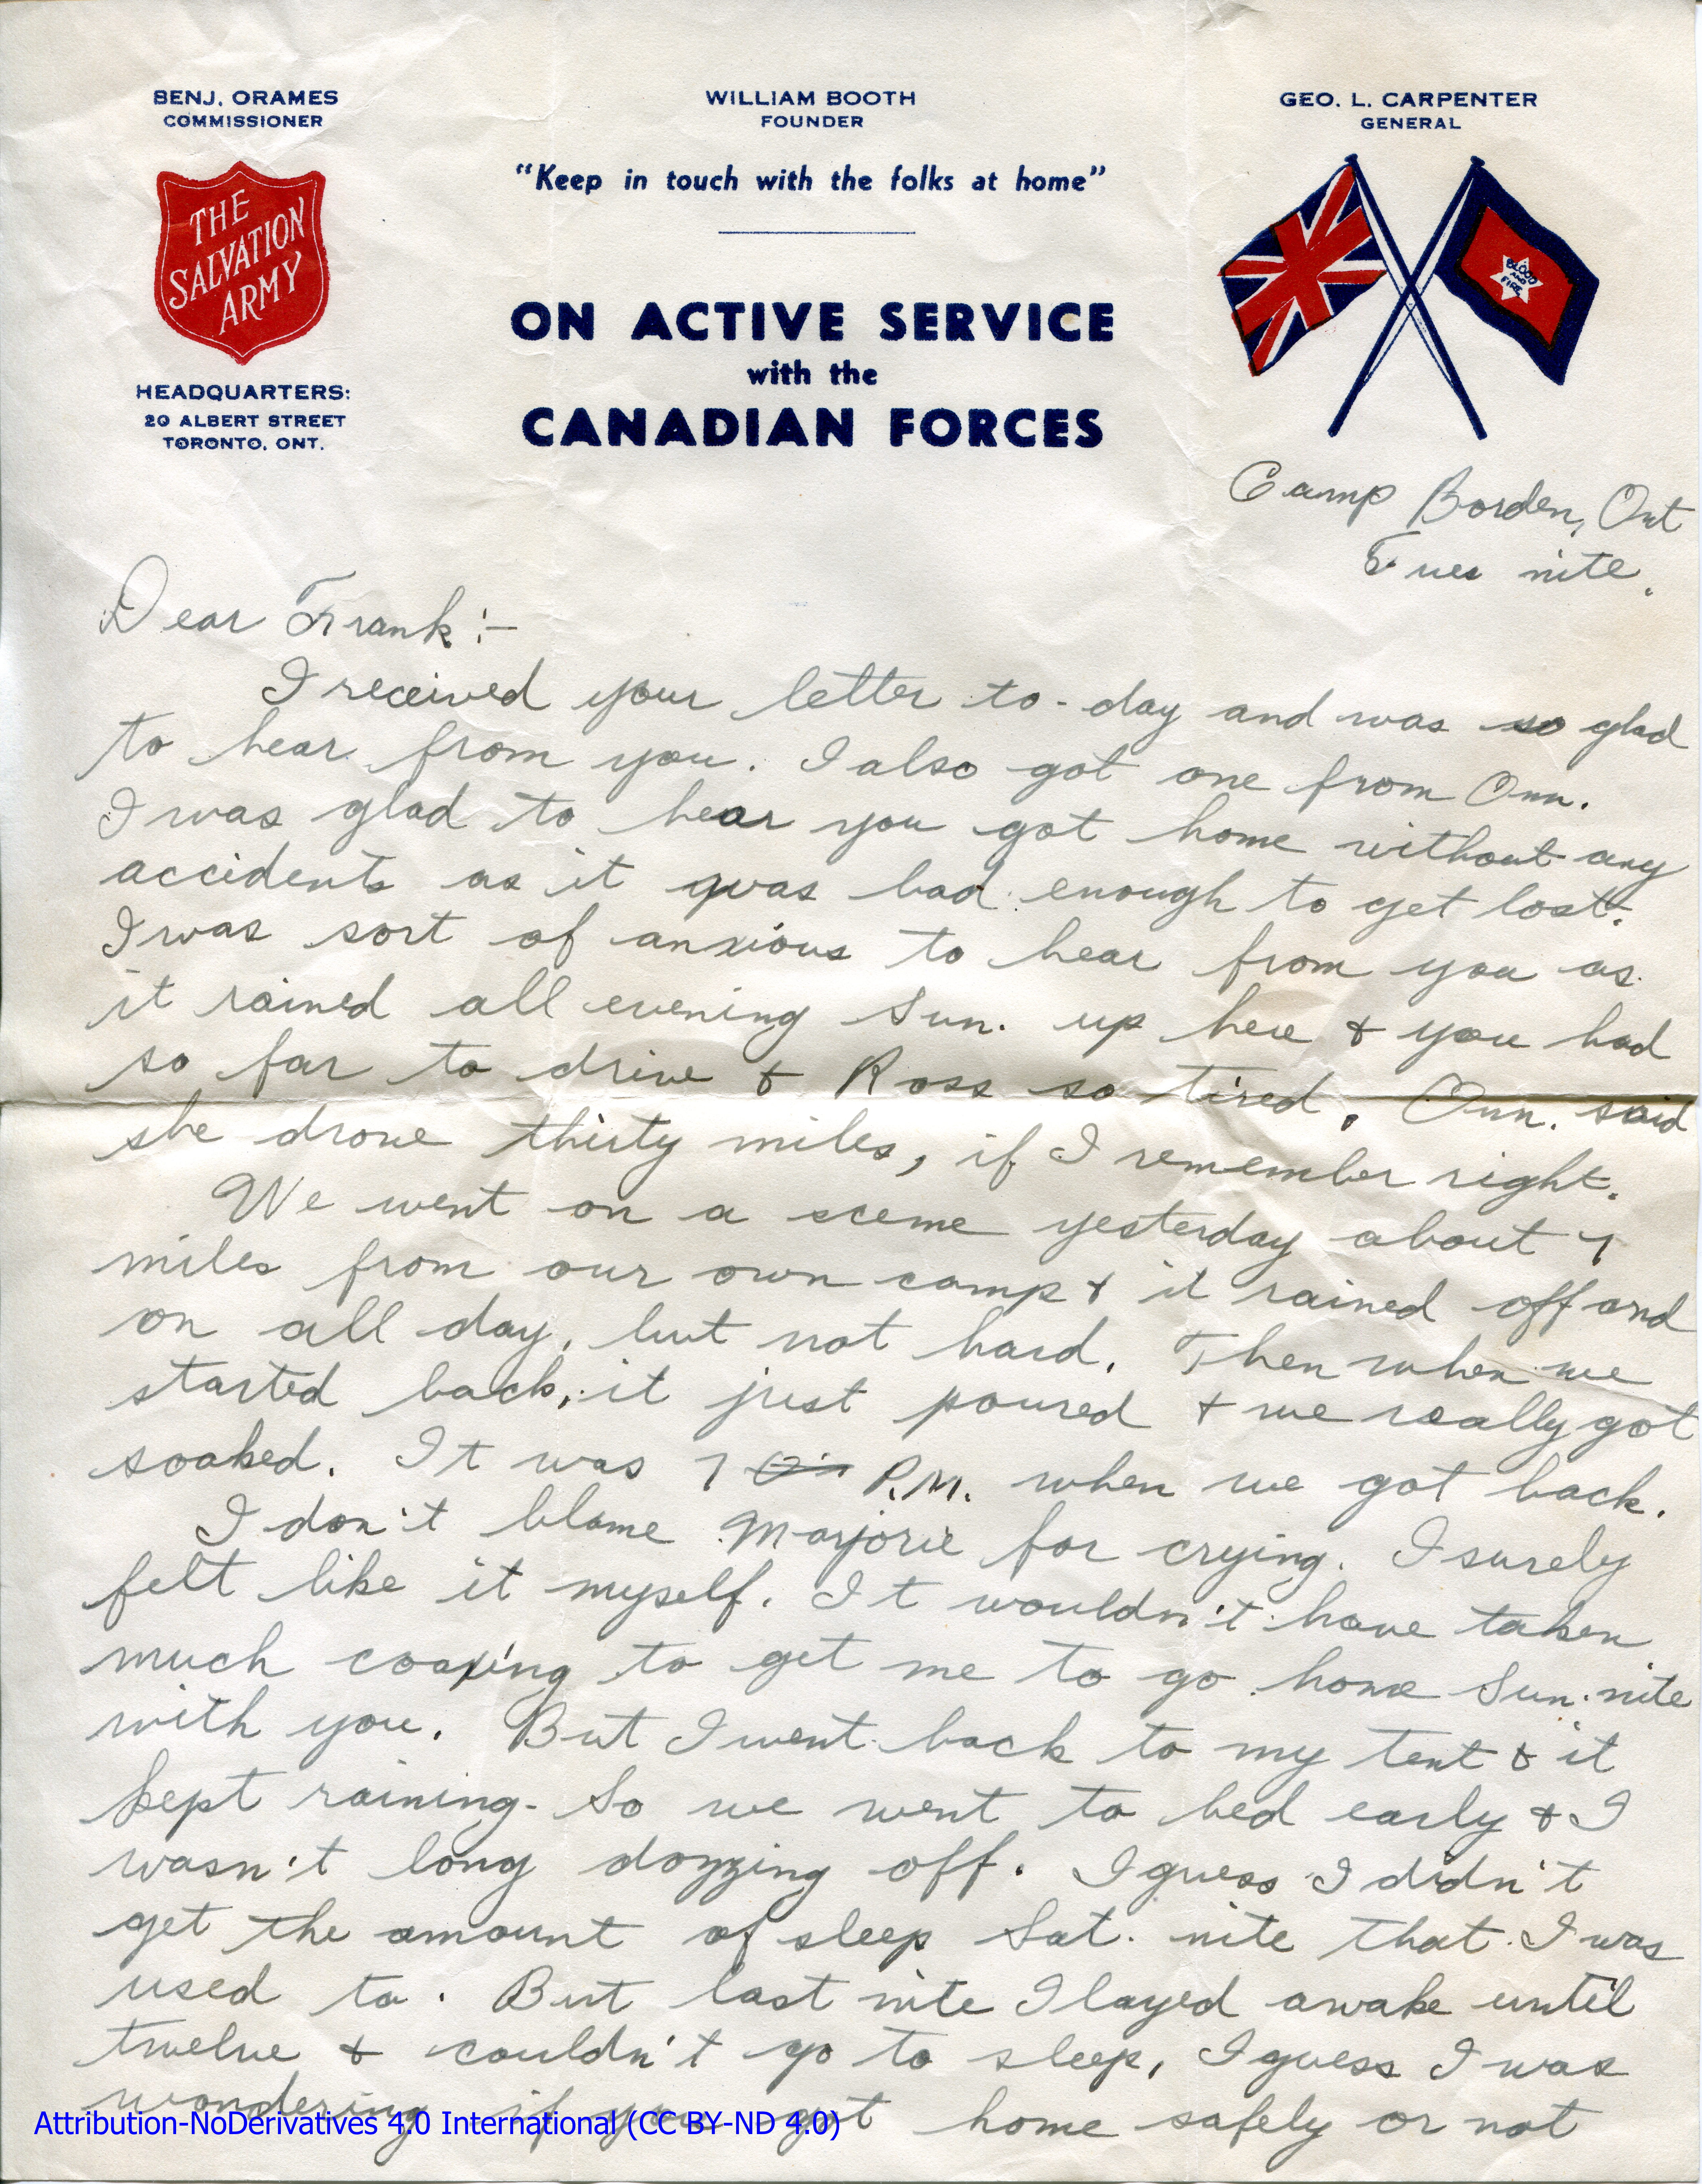 BENJ. ORAMES
COMMISSIONER
WILLIAM BOOTH
FOUNDER
GEO. L. CARPENTER
GENERAL
"Keep in touch with the folks at home"
THE
SALVATION
ARMY
BLOOD
AND
FIRE
ON ACTIVE SERVICE
with the
CANADIAN FORCES
HEADQUARTERS:
20 ALBERT STREET
TORONTO, ONT.
Camp Borden, Ont
Tues nite.
Dear Frank:-
I received your letter to-day and was so glad
to hear from you. I also got one from Onn.
I was glad to hear you got home without any
accidents as it was bad enough to get lost.
I was sort of anxious to hear from you as
it rained all evening Sun. up here & you had
so far to drive & Ross so tired. Onn. said
she drove thirty miles, if I remember right.
We went on a sceme yesterday about 7
miles from our own camp & it rained off and
on all day, but not hard. Then when we
started back, it just poured & we really got
soaked. It was 7 P.M. when we got back.
I don't blame Marjorie for crying. I surely
felt like it myself. It wouldn't have taken
much coaxing to get me to go home Sun. nite
with you. But I went back to my tent & it
kept raining - So we went to bed early & I
wasn't long dozzing off. I guess I didn't
get the amount of sleep Sat. nite that I was
used to. But last nite I layed awake until
twelve & couldn't go to sleep, I guess I was
wondering if you got home safely or not
Attribution-NoDerivatives 4.0 International (CC BY-ND 4.0)